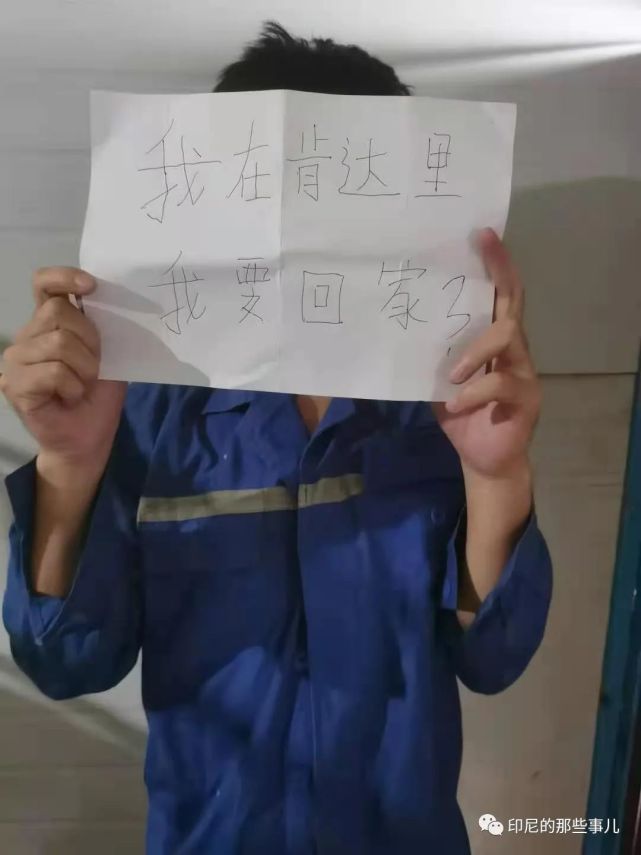 我在肯达里
我要回家?
印尼的那些事儿